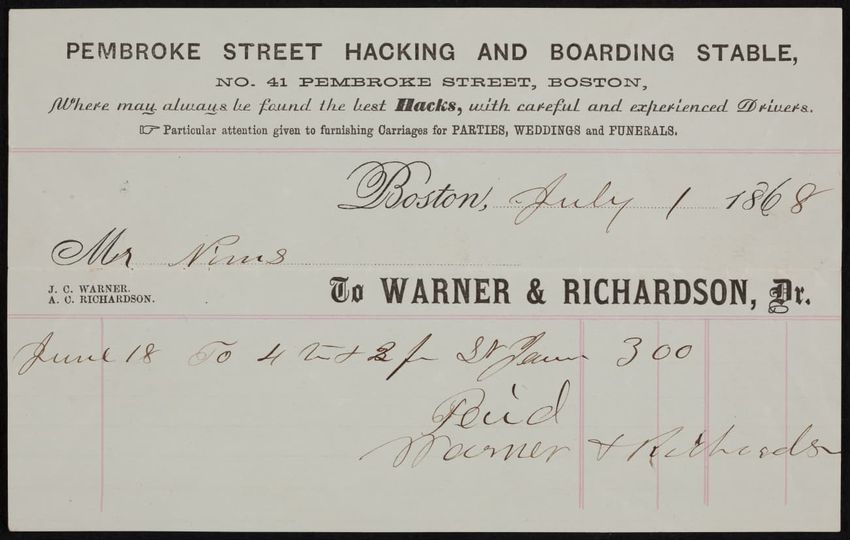 PEMBROKE STREET HACKING AND BOARDING STABLE,
NO. 41 PEMBROKE STREET, BOSTON,
Where may always be found the best Hacks, with careful and experienced Drivers.
☞ Particular attention given to furnishing Carriages for PARTIES, WEDDINGS and FUNERALS.
Boston, July 1 1868
Mr Nims
J. C. WARNER.
A. C. RICHARDSON.
To WARNER & RICHARDSON, Dr.
June 18 To 4 3 00
Warner & Richardson